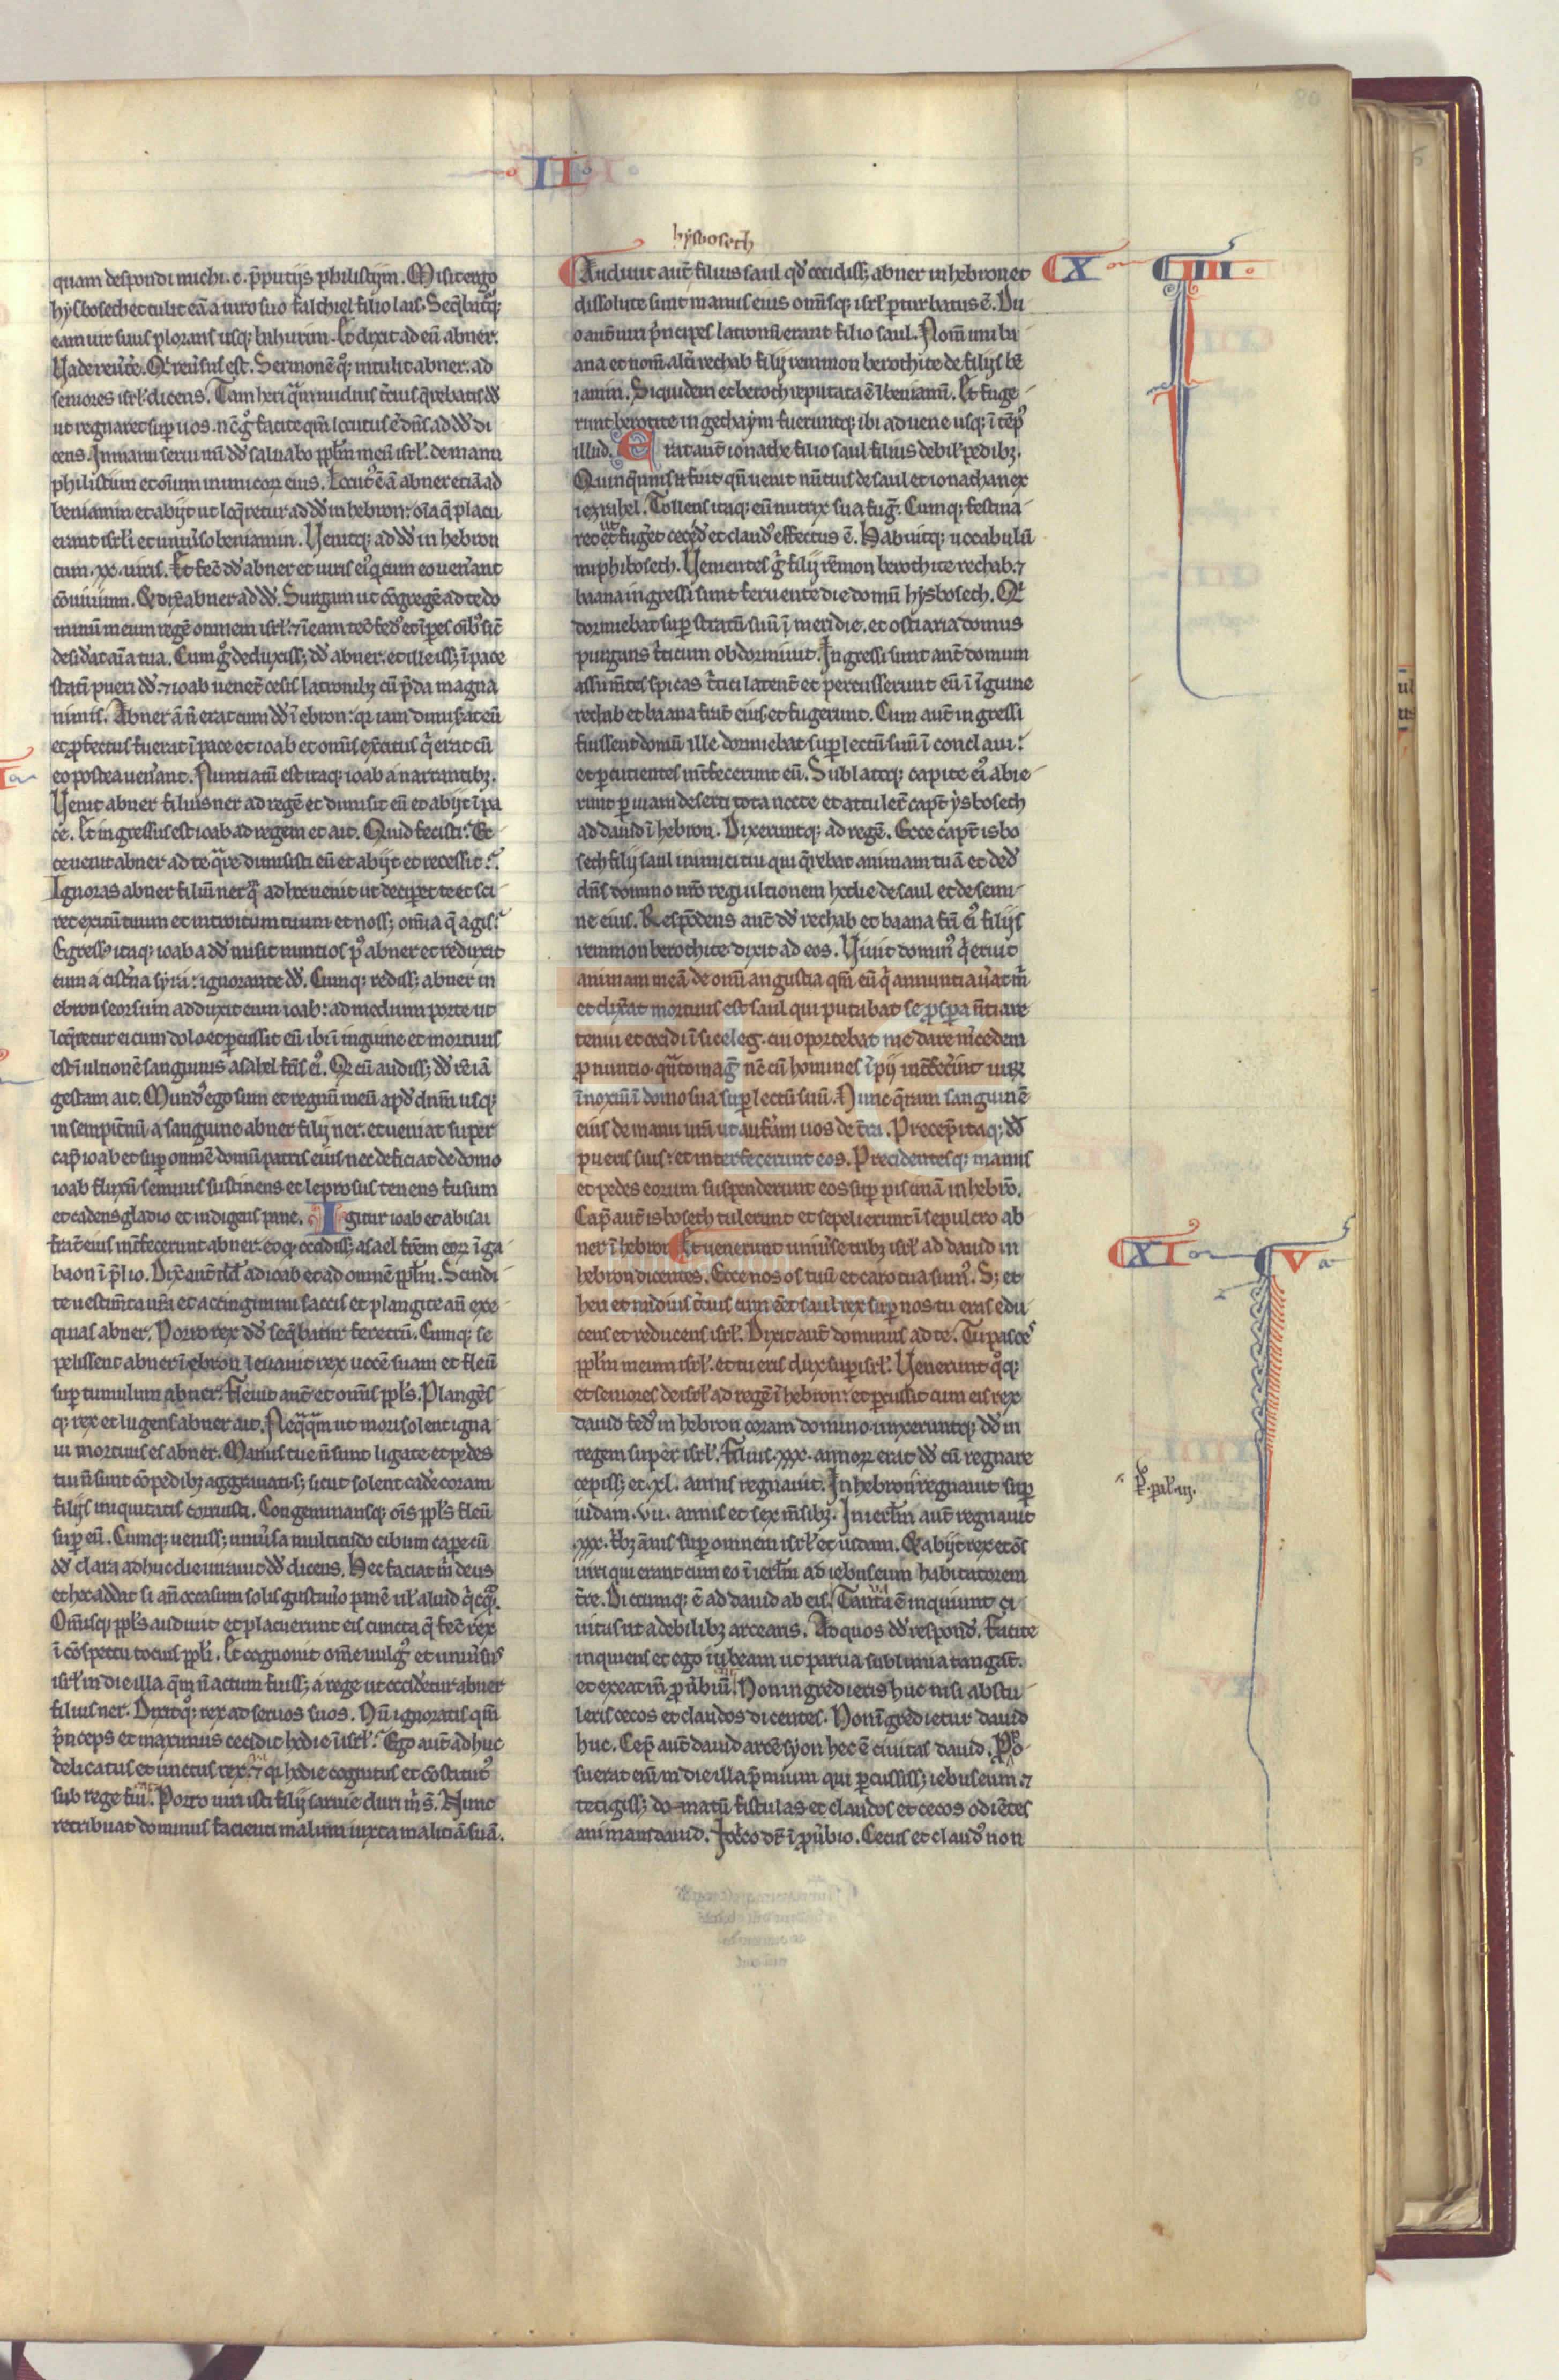 II
quam despondi michi .c. p̄putijs philistijm. Misit ergo
hysbosech et tulit eā a uiro suo falthiel filio lais. Seq̄batq;
eam uir suus plorans usq; bahurim. Et dixit ad eū abner.
Vade reuˀte. Qͥ reuˀsus est. Sermonē qͦ; intulit abner ad
seniores isrł dicens. Tam heri qͣm nudius tˀcius q̄rebatis dd̄
ut regnaret suꝑ uos. nc̄ gͦ facite qm̄ locutus ē dn̄s ad dd̄ di
cens. In manu serui mei dd̄ saluabo ppłm meū isrł de manu
philistiim et om̄ium inimicoꝝ eius. Locutꝰ ē ā abner etiā ad
beniamin et abijt ut loq̄retur ad dd̄ in hebron: oīa q̄ placu
erant isrli et uniuˀso beniamin. Venitq; ad dd̄ in hebron
cum .xx. uiris. Et fec̄ dd̄ abner et uiris eiꝰ q̇ cum eo uenˀant
cōuiuium. Et dix̄ abner ad dd̄. Surgam ut cōgregē ad te do
minū meum regē omnem isrł ⁊ ineam tec̄ fedꝰ et īpes oīb; sic̄
desidˀat aīa tua. Cum gͦ deduxiss; dd̄ abner. et ille iss; ī pace
statī pueri dd̄ ⁊ ioab uener̄t cesis latronib; cū p̄da magna
nimis. Abner ā n̄ erat cum dd̄ ī ebron: qꝛ iam dimisˀat eū
et ꝓfectus fuerat ī pace et ioab et om̄is exˀcitus q̇ erat cū
eo postea uenˀant. Nuntiatū est itaq; ioab a narrantib;.
Venit abner filius ner ad regē et dimisit eū et abijt ī pa
ce. Et ingressus est ioab ad regem et ait. Quid fecisti? Ec
ce uenit abner ad te qͣre dimisisti eū et abijt et recessit?
Ignoras abner filiū ner qm̄ ad hͦ uenit ut deciꝑet te et sci
ret exitū tuum et introitum tuum et noss; om̄ia q̄ agis?
Egressꝰ itaq; ioab a dd̄ misit nuntios pꝰ abner et reduxit
eum a cistˀna syra: ignorante dd̄. Cumq; rediss; abner in
ebron seorsum adduxit eum ioab: ad medium porte ut
loq̄retur ei cum dolo et ꝑcussit eū ibi ī inguine et mortuus
est ī ultionē sanguinis asahel fr̄is eiꝰ. Qͩ cū audiss; dd̄ rē iā
gestam ait. Mundꝰ ego sum et regnū meū apd̄ dn̄m usq;
in sempitˀnū a sanguine abner filij ner. et ueniat super
cap̄ ioab et suꝑ omnē domū patris eius nec deficiat de domo
ioab fluxū seminis sustinens et leprosus tenens fusum
et cadens gladio et indigens pane. Igitur ioab et abisai
frat̄ eius int̄fecerunt abner. eo q; occidiss; asael fr̄em eoꝝ ī ga
baon ī p̄lio. Dix̄ aut̄ dd̄ ad ioab et ad omnē ppłm. Scindi
te uestim̄ta ur̄a et accingimini saccis et plangite an̄ exe
quias abner. Porro rex dd̄ seq̄batur feretrū. Cumq; se
pelissent abner ī ebron leuauit rex uocē suam et fleuˀ
suꝑ tumulum abner. Fleuit aut̄ et om̄is ppłs. Plangēs
q; rex et lugens abner ait. Neqͣqͣm ut mori solent igna
ui mortuus es abner. Manus tue n̄ sunt ligate et pedes
tui n̄ sunt cōpedib; aggrauati. s; sicut solent cadˀe coram
filijs iniquitatis corruisti. Congeminansq; oīs ppłs fleuˀ
suꝑ eū. Cumq; ueniss; uniuˀsa multitudo cibum capˀe cū
dd̄ clara adhuc die iurauit dd̄ dicens. Hec faciat m̄ deus
et hec addat si an̄ occasum solis gustauˀo panē uł aliud q̇cq̄.
Om̄isq; ppłs audiuit et placuerunt eis cuncta q̄ fec̄ rex
ī cōspectu tocius ppłi. Et cognouit om̄e uulgꝰ et uniuˀsus
isrł in die illa qm̄ n̄ actum fuiss; a rege ut occidˀetur abner
filius ner. Dixitq; rex ad seruos suos. Nū ignoratis qm̄
p̄nceps et maximus cecidit hodie ī isrł? Ego aut̄ adhuc
delicatus et unctus rex. ⁊ qͥ hodie cognitus et cōstitutꝰ
sub rege sum. Porro uiri isti filij saruie duri m̄ s̄. Nunc
retribuat dominus facienti malum iuxta maliciā suā.
hysbosech
Audiuit aut̄ filius saul qd̄ cecidiss; abner in hebron et
dissolute sunt manus eius om̄isq; isrł ꝑturbatus ē. Du
o aut̄ uiri p̄ncipes latronū erant filio saul. Nom̄ uni ba
ana et nom̄ altˀi rechab filij remmon berothite de filijs bē
iamin. Siquidem et beroth reputata ē ī beniamī. Et fuge
runt berotite in gethaym fueruntq; ibi aduene usq; ī tēpꝰ
illud. Erat aut̄ ionathe filio saul filius debilˀ pedib;.
Quinq̄nnis fuit qn̄ uenit nūtius de saul et ionathan ex
iezrahel. Tollens itaq; eū nutrix sua fuḡ. Cumq; festina
ret ut fugˀet cecid̄ et claudꝰ effectus ē. Habuitq; uocabulū
miphibosech. Venientes gͦ filij rēmon berothite rechab ⁊
baana ingressi sunt feruente die domū hysbosech. Qͥ
dormiebat suꝑ stratū suū ī meridie. et ostiaria domus
purgans tˀticum obdormiuit. Ingressi sunt aut̄ domum
assum̄tes spicas tˀtici latent̄ et percusserunt eū ī īguine
rechab et baana frat̄ eius et fugerunt. Cum aut̄ ingressi
fuissent domū ille dormiebat suꝑ lectū suū ī conclaui:
et ꝑcutientes int̄fecerunt eū. Sublatoq; capite eiꝰ abie
runt ꝑ uiam deserti tota nocte et attuler̄t capˀt ysbosech
ad dauid ī hebron. Dixeruntq; ad regē. Ecce capˀt isbo
sech filij saul inimici tui qui q̄rebat animam tuā et ded̄
dn̄s domino nr̄o regi ultionem hodie de saul et de semi
ne eius. Respōdens aut̄ dd̄ rechab et baana fr̄i eiꝰ filijs
remmon berothite dixit ad eos. Viuit dominꝰ q̇ eruit
animam meā de omī angustia qm̄ eū q̇ annuntiauˀat m̄
et dixˀat mortuus est saul qui putabat se ꝓspˀa nūtiare
tenui et occidi ī siceleg. cui oportebat me dare mˀcedem
ꝓ nuntio. qͣnto maḡ nc̄ cū homines īpij int̄fecˀint uirū
īnoxiū ī domo sua suꝑ lectū suū. Nunc q̄ram sanguinē
eius de manu ur̄a ut aufˀam uos de tˀra. Precep̄ itaq; dd̄
pueris suis: et interfecerunt eos. Precidentesq; manus
et pedes eorum suspenderunt eos suꝑ piscinā in hebrō.
Cap̄ aut̄ isbosech tulerunt et sepelierunt ī sepulcro ab
ner ī hebron Et uenerunt uniuˀse trib; isrł ad dauid in
hebron dicentes. Ecce nos os tuū et caro tua sumꝰ. S; et
heri et nudius tˀcius cum eēt saul rex suꝑ nos tu eras edu
cens et reducens isrł. Dixit aut̄ dominus ad te. Tu pasces
ppłm meum isrł. et tu eris dux suꝑ isrł. Venerunt qͦq;
et seniores de isrł ad regē ī hebron: et ꝑcussit cum eis rex
dauid fedꝰ in hebron coram domino. unxeruntq; dd̄ in
regem super isrł. Filius .xxx. annoꝝ erat dd̄ cū regnare
cepiss; et .xl. annis regnauit. In hebron regnauit suꝑ
iudam .vii. annis et sex m̄sib;. In ierłm aut̄ regnauit
.xxx. tˀb; ānis suꝑ omnem isrł et iudam. Et abijt rex et oēs
uiri qui erant cum eo ī ierłm ad iebuseum habitatorem
tˀre. Dictumq; ē ad dauid ab eis. Tanta ē inquiunt ci
uitas ut a debilib; arceans. Ad quos dd̄ respond̄. Facite
inquiens et ego iubeam ut parua sublimia tangāt.
et exeat m̄ ꝓuˀbiū. Non ingredieris huc nisi abstu
leris cecos et claudos dicentes. Non īgredietur dauid
huc. Cep̄ aut̄ dauid arcē syon hec ē ciuitas dauid. Pro
suerat enī in die illa p̄mium qui ꝑcussiss; iebuseum. ⁊
tetigiss; domatū fistulas et claudos et cecos odiētes
animam dauid. Idcͦo dr̄ ī ꝓuˀbio. Cecus et claudꝰ non
X
IIII
XI
V